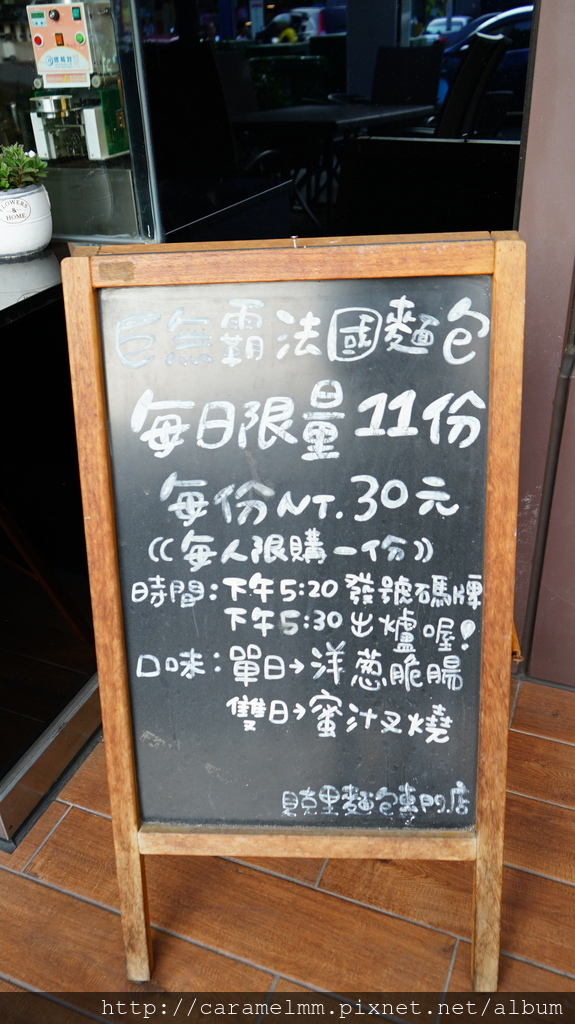 FLOWERS
&
HOME
巨無霸法國麵包
每日限量11份
每份NT.30元
((每人限購一份))
時間:下午5:20發號碼牌
下午5:30出爐喔!
口味:單日→洋葱脆腸
雙日→蜜汁叉燒
貝克里麵包專門店
http://caramelmm.pixnet.net/album